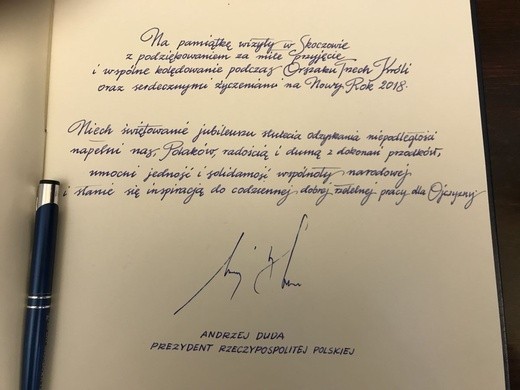 Na pamiątkę wizyty w Skoczowie
z podziękowaniem za miłe przyjęcie
i wspólne kolędowanie podczas Orszaku Trzech Króli
oraz serdecznymi życzeniami na Nowy Rok 2018.
Niech świętowanie jubileuszu stulecia odzyskania niepodległości
napełni nas, Polaków, radością i dumą z dokonań przodków,
umocni jedność i solidarność wspólnoty narodowej
i stanie się inspiracją do codziennej dobrej rzetelnej pracy dla Ojczyzny
ANDRZEJ DUDA
PREZYDENT RZECZYPOSPOLITEJ POLSKIEJ